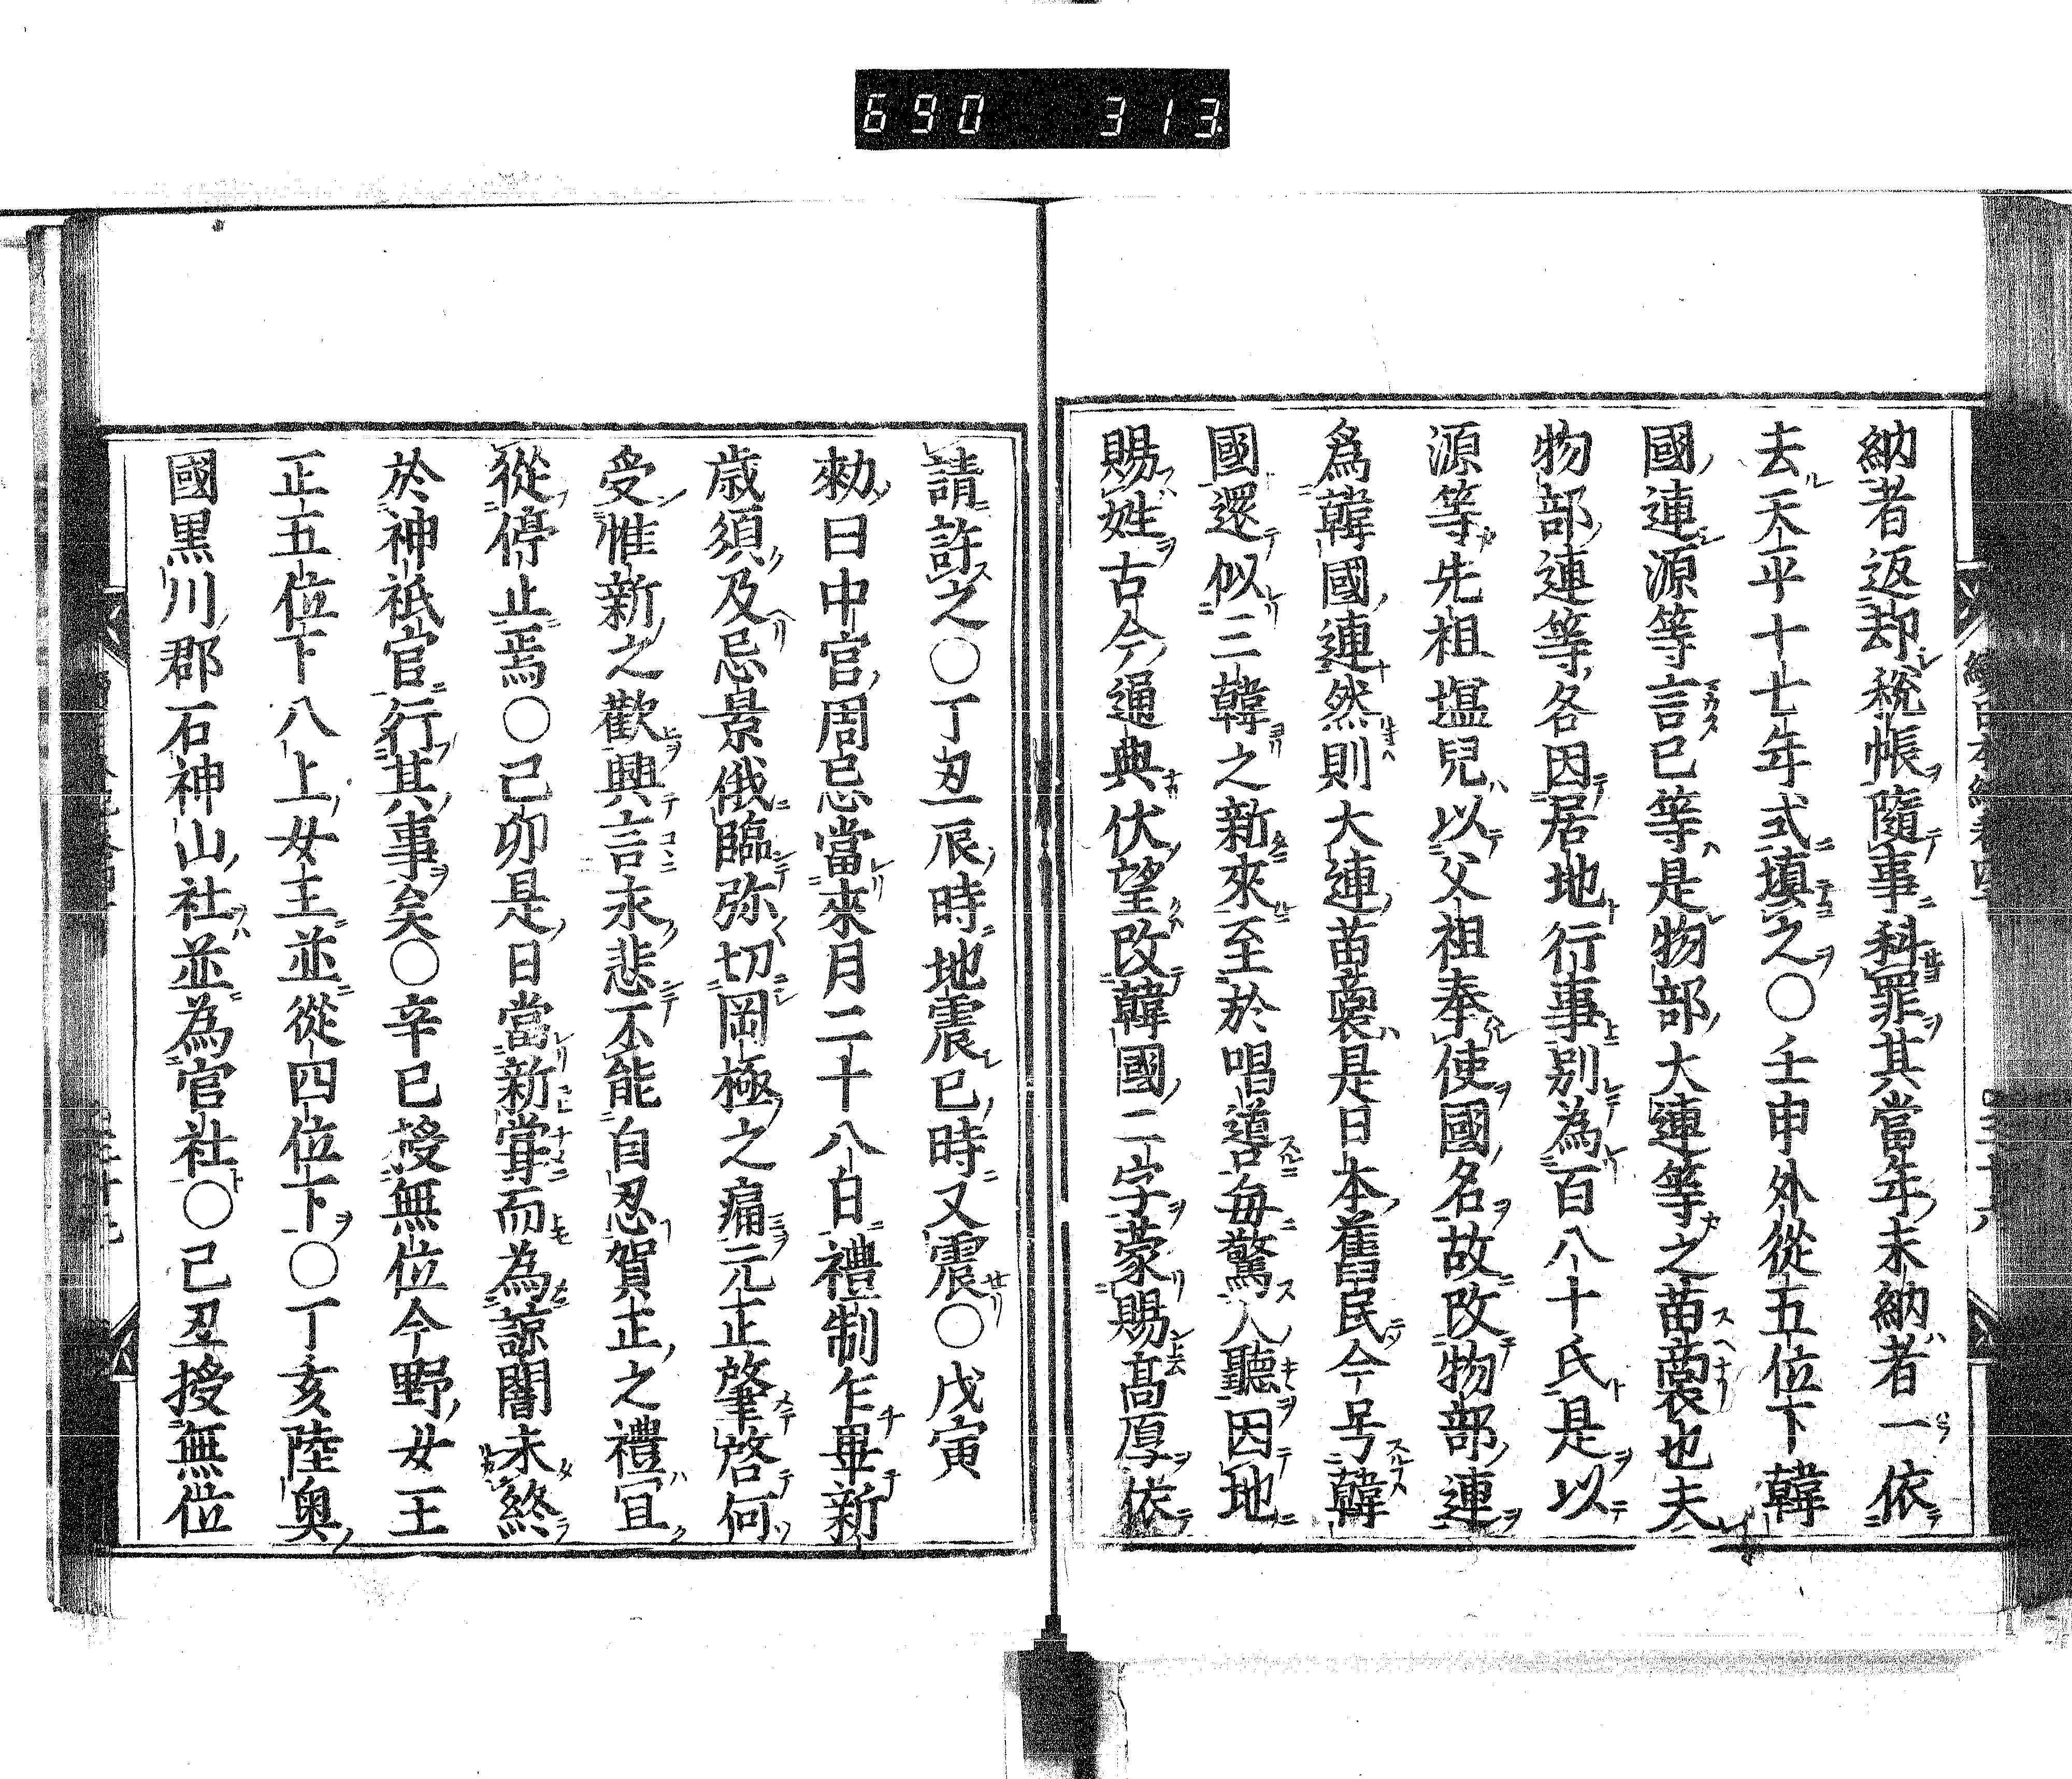 690 313
納者返却税帳隨事科罪其當年未納者一依
去天平十七年式填之○壬申外從五位下韓
國連源等言已等是物部大連等之苗裔也夫
物部連等各因居地行事別為百八十氏是以
源等先祖塩兒以父祖奉使國名故改物部連
爲韓國連然則大連苗裔是日本舊民今号韓
國還似三韓之新來至於唱導毎驚人聽因地
賜姓古今通典伏望改韓國二字蒙賜髙厚依
請許之○丁丑辰時地震已時又震○戊寅
勑曰中宮周忌當來月二十八日禮制乍畢新
歳須及忌景俄臨弥切罔極之痛元正肇啓何
受惟新之歡興言永悲不能自忍賀正之禮冝
從停止焉○己卯是日當新甞而為諒闇未終
於神祇官行其事矣○辛巳授無位今野女王
正五位下八上女王並從四位下○丁亥陸奥
國黒川郡石神山社並為官社○己丑授無位